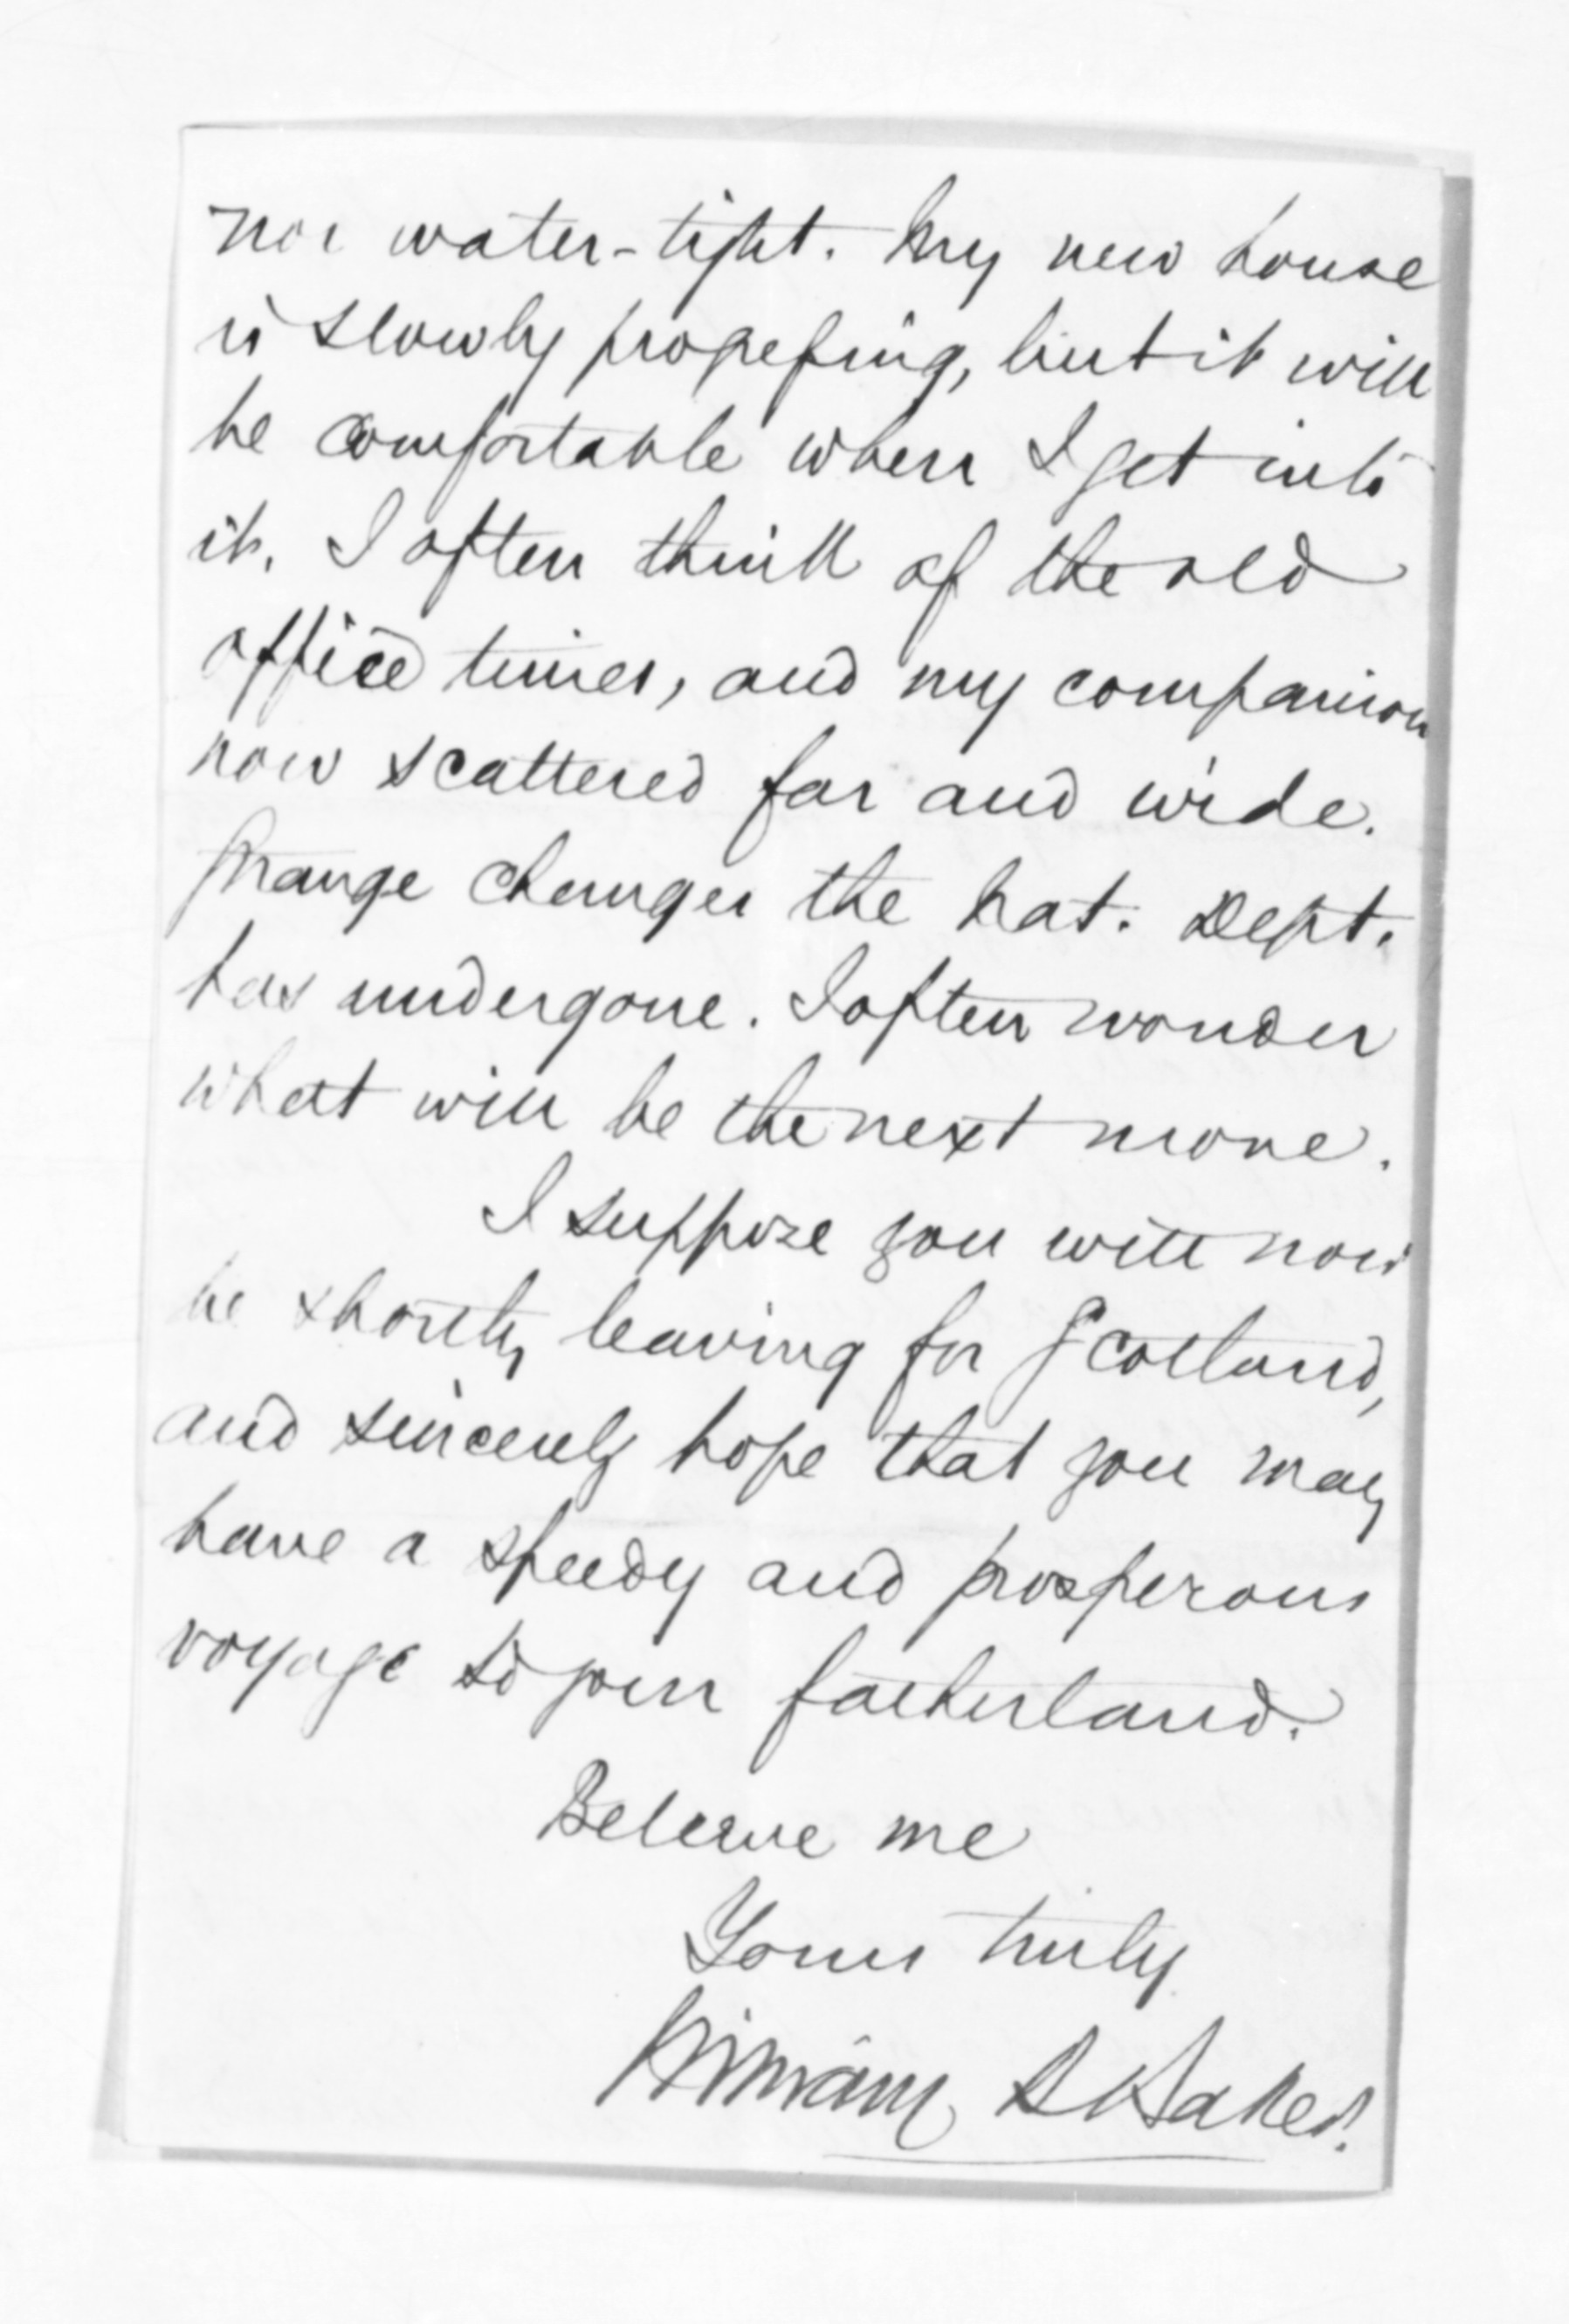 nor water-tight. My new house
is slowly progressing, but it will
be comfortable when I get into
it. I often think of the old
office times, and my companions
now scattered far and wide.
Strange changes the Nat. Dept.
has undergone. I often wonder
what will be the next move.
I suppose you will now
be shortly leaving for Scotland,
and sincerely hope that you may
have a speedy and prosperous
voyage to your fatherland.
Beleive me
Yours truly
William Baker.